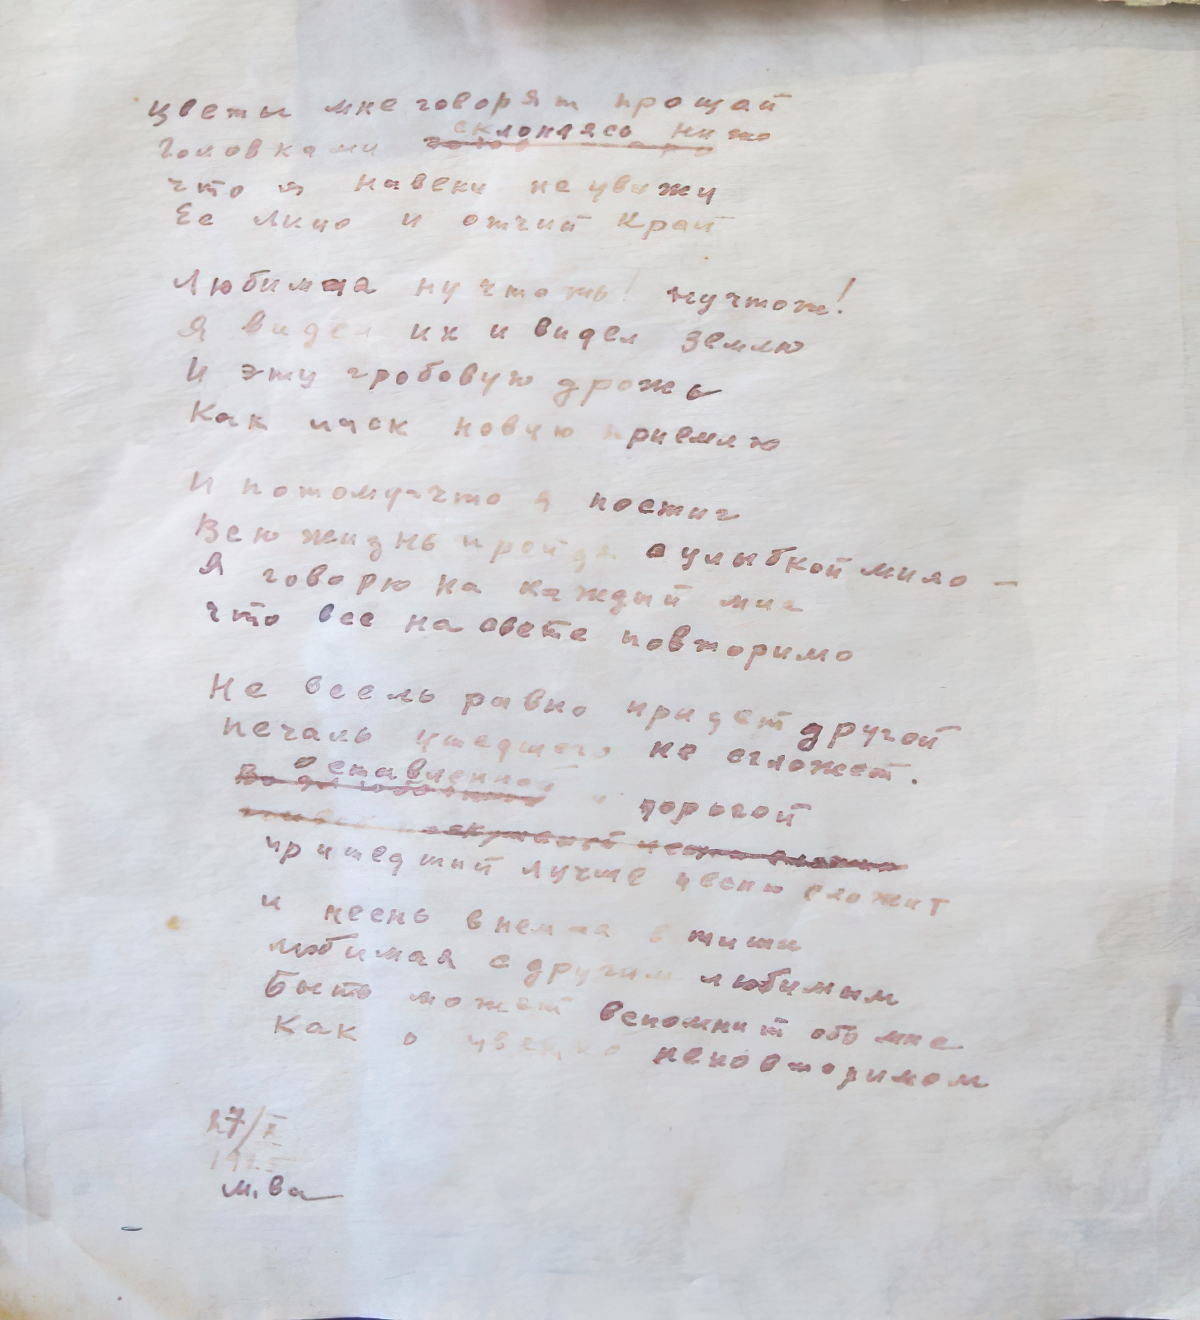 Цветы мне говорят прощай
Головками склоняясь ниже
Что я навеки не увижу
Ее лицо и отчий край
Любимая ну что жь! ну что ж!
Я видел их и видел землю
И эту гробовую дрожь
Как ласк новую приемлю
И потому что я постиг
Всю жизнь пройдя с улыбкой мимо —
Я говорю на каждый миг
Что все на свете повторимо
Не все ль равно придет другой
Печаль ушедшего не сгложет.
Оставленной и дорогой
Пришедший лучше песню сложит
И песнь внемля в тиши
Любимая с другим любимым
Быть может вспомнит обо мне
Как о цветке неповторимом
27/X
1925
М. Ва